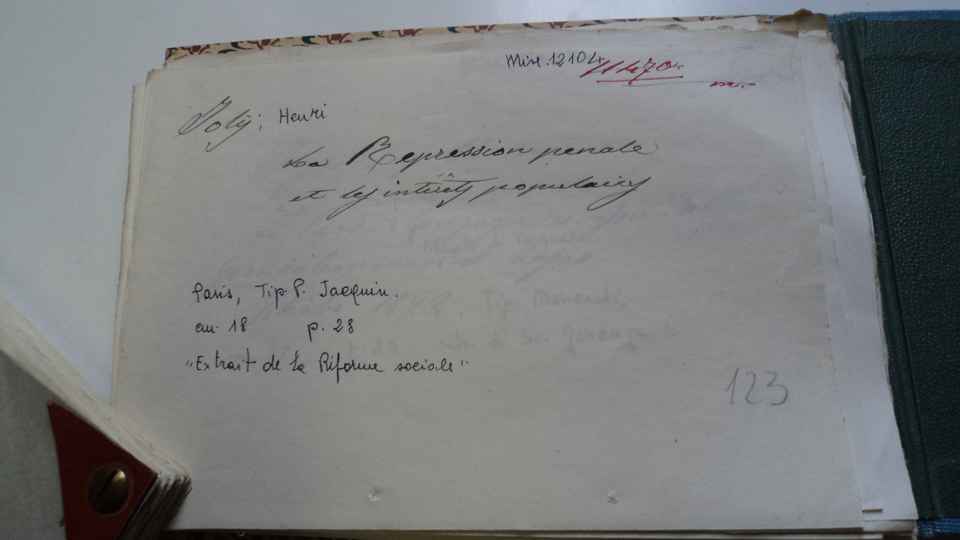 Misc. 12104
11470
Joly, Henri
La Repression penale
et les intérêts populaires
Paris, Tip. P. Jacquin.
an. 18 p. 28
"Extrait de la Riforme sociale"
123